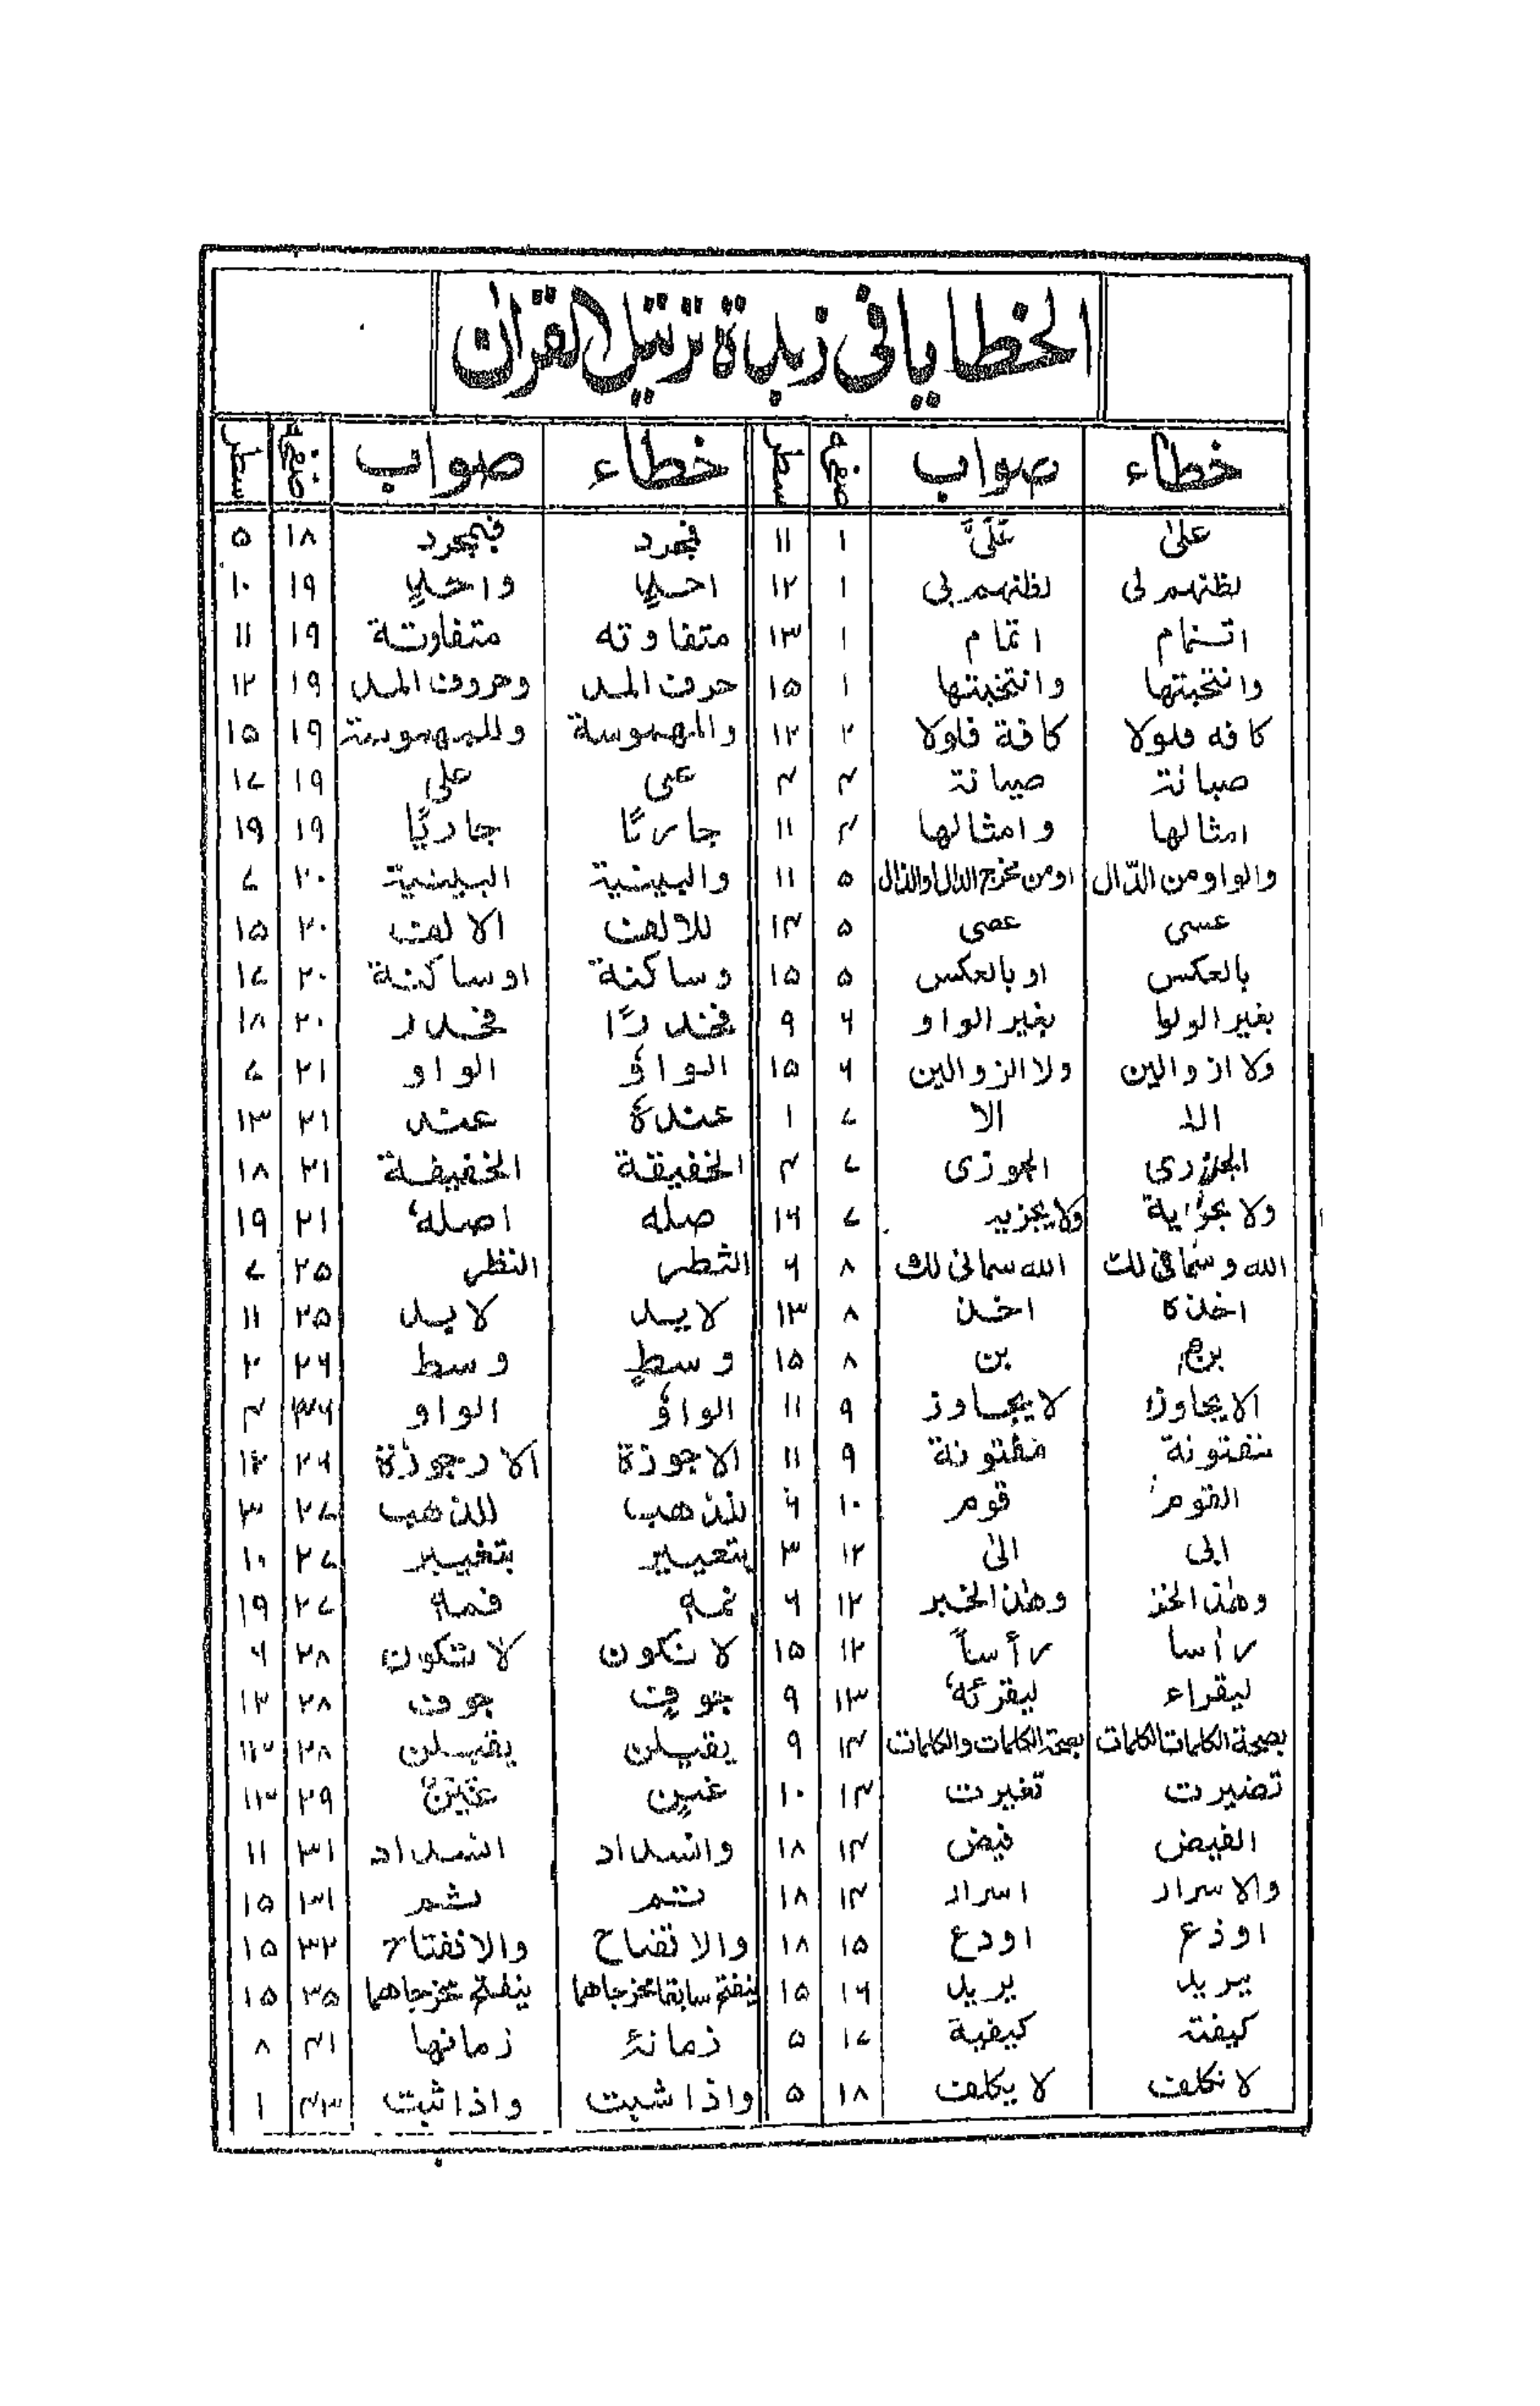 الخطايا فى زبدة ترتيل القرآن
خطاء صواب صفحه سطر خطاء صواب صفحه سطر
علىٰ عَلَىَّ ۱ ۱۱ فجرد فبمجرد ۱۸ ۵
لظنهم لى لظنهم بى ۱ ۱۲ ۱۹ ۱۰
اتمام ۱ ۱۳ متفاوته متفاوتة ۱۹ ۱۱
وانتخبتها وانتخبتها ۱ ۱۵ حرف المد وحروف المد ۱۹ ۱۲
كافه فلولا كافة فلولا ۲ ۱۲ والمهموسة وللمهموسة ۱۹ ۱۵
صبانة صيانة ۴ ۴ عى على ۱۹ ۱۷
امثالها وامثالها ۴ ۱۱ جارتًا جاريًا ۱۹ ۱۹
والواو من الدّال او من مخرج الدال والذال ۵ ۱۱ والبينية البينية ۲۰ ۷
عسى عصى ۵ ۱۴ للالف الالف ۲۰ ۱۵
بالعكس او بالعكس ۵ ۱۵ وساكنة اوساكنة ۲۰ ۱۷
بغير الولوا بغير الواو ۶ ۹ ۲۰ ۱۸
ولا ازوالين ولا الزوالين ۶ ۱۵ الواؤ الواو ۲۱ ۷
الا ۷ ۱ عندهٗ عند ۲۱ ۱۳
الجوزى ۷ ۴ الخفيقة الخفيفة ۲۱ ۱۸
۷ ۱۶ صله اصله ۲۱ ۱۹
الله وسمانى لك الله سمانى لك ۸ ۶ الشطر النظر ۲۵ ۷
اخذه اخذ ۸ ۱۳ لايد لابد ۲۵ ۱۱
بن ۸ ۱۵ وسطٍ وسط ۲۶ ۲
الايجاوز لايجاوز ۹ ۱۱ الواؤ الواو ۲۶ ۴
نفتونة مفتونة ۹ ۱۱ الاجوزة الارجوزة ۲۶ ۱۲
القوم قوم ۱۰ ۶ لذهب للذهب ۲۷ ۳
ابى الىٰ ۱۲ ۳ بتعيير بتغيير ۲۷ ۱۰
وهٰذا الخذ وهٰذا الخبر ۱۲ ۶ ثمه فمه ۲۷ ۱۹
رأسا رأساً ۱۲ ۱۵ لا نكون لا تكون ۲۸ ۶
ليقراء ليقرئه ۱۳ ۹ جوفٍ جوف ۲۸ ۱۲
بصحة الكلمات الكلمات بصحة الكلمات والكلمات ۱۴ ۹ ۲۸ ۱۳
تضيرت تغيرت ۱۴ ۱۰ غينٍ ۲۹ ۱۳
الفيض فيض ۱۴ ۱۸ وانسداد انسداد ۳۱ ۱۱
والاسرار اسرار ۱۴ ۱۸ تتم ثم ۳۱ ۱۵
اوذع اودع ۱۵ ۱۸ والاتضاح والانفتاح ۳۲ ۱۵
يريد ۱۶ ۱۵ ينفتح سابقا مخرجاهما ينفتح مخرجاهما ۳۵ ۱۵
كيفتة كيفية ۱۷ ۵ زمانهٗ زمانها ۴۱ ۸
لا نكلف لا يكلف ۱۸ ۵ واذا شبت واذا ثبت ۴۳ ۱